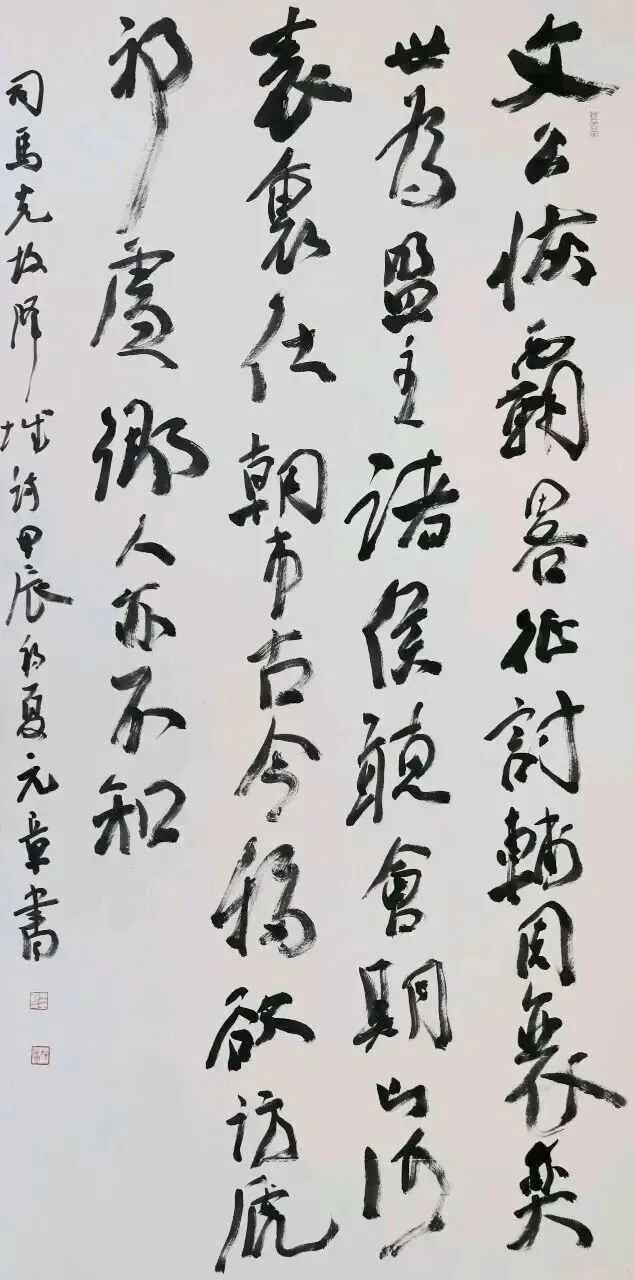 文公恢霸畧征討輔周衰奕
世為盟主諸侯聽會期山河
表裏在朝市古今移欲訪虒
祁處鄉人亦不知
司馬光故絳城詩甲辰初夏元章書